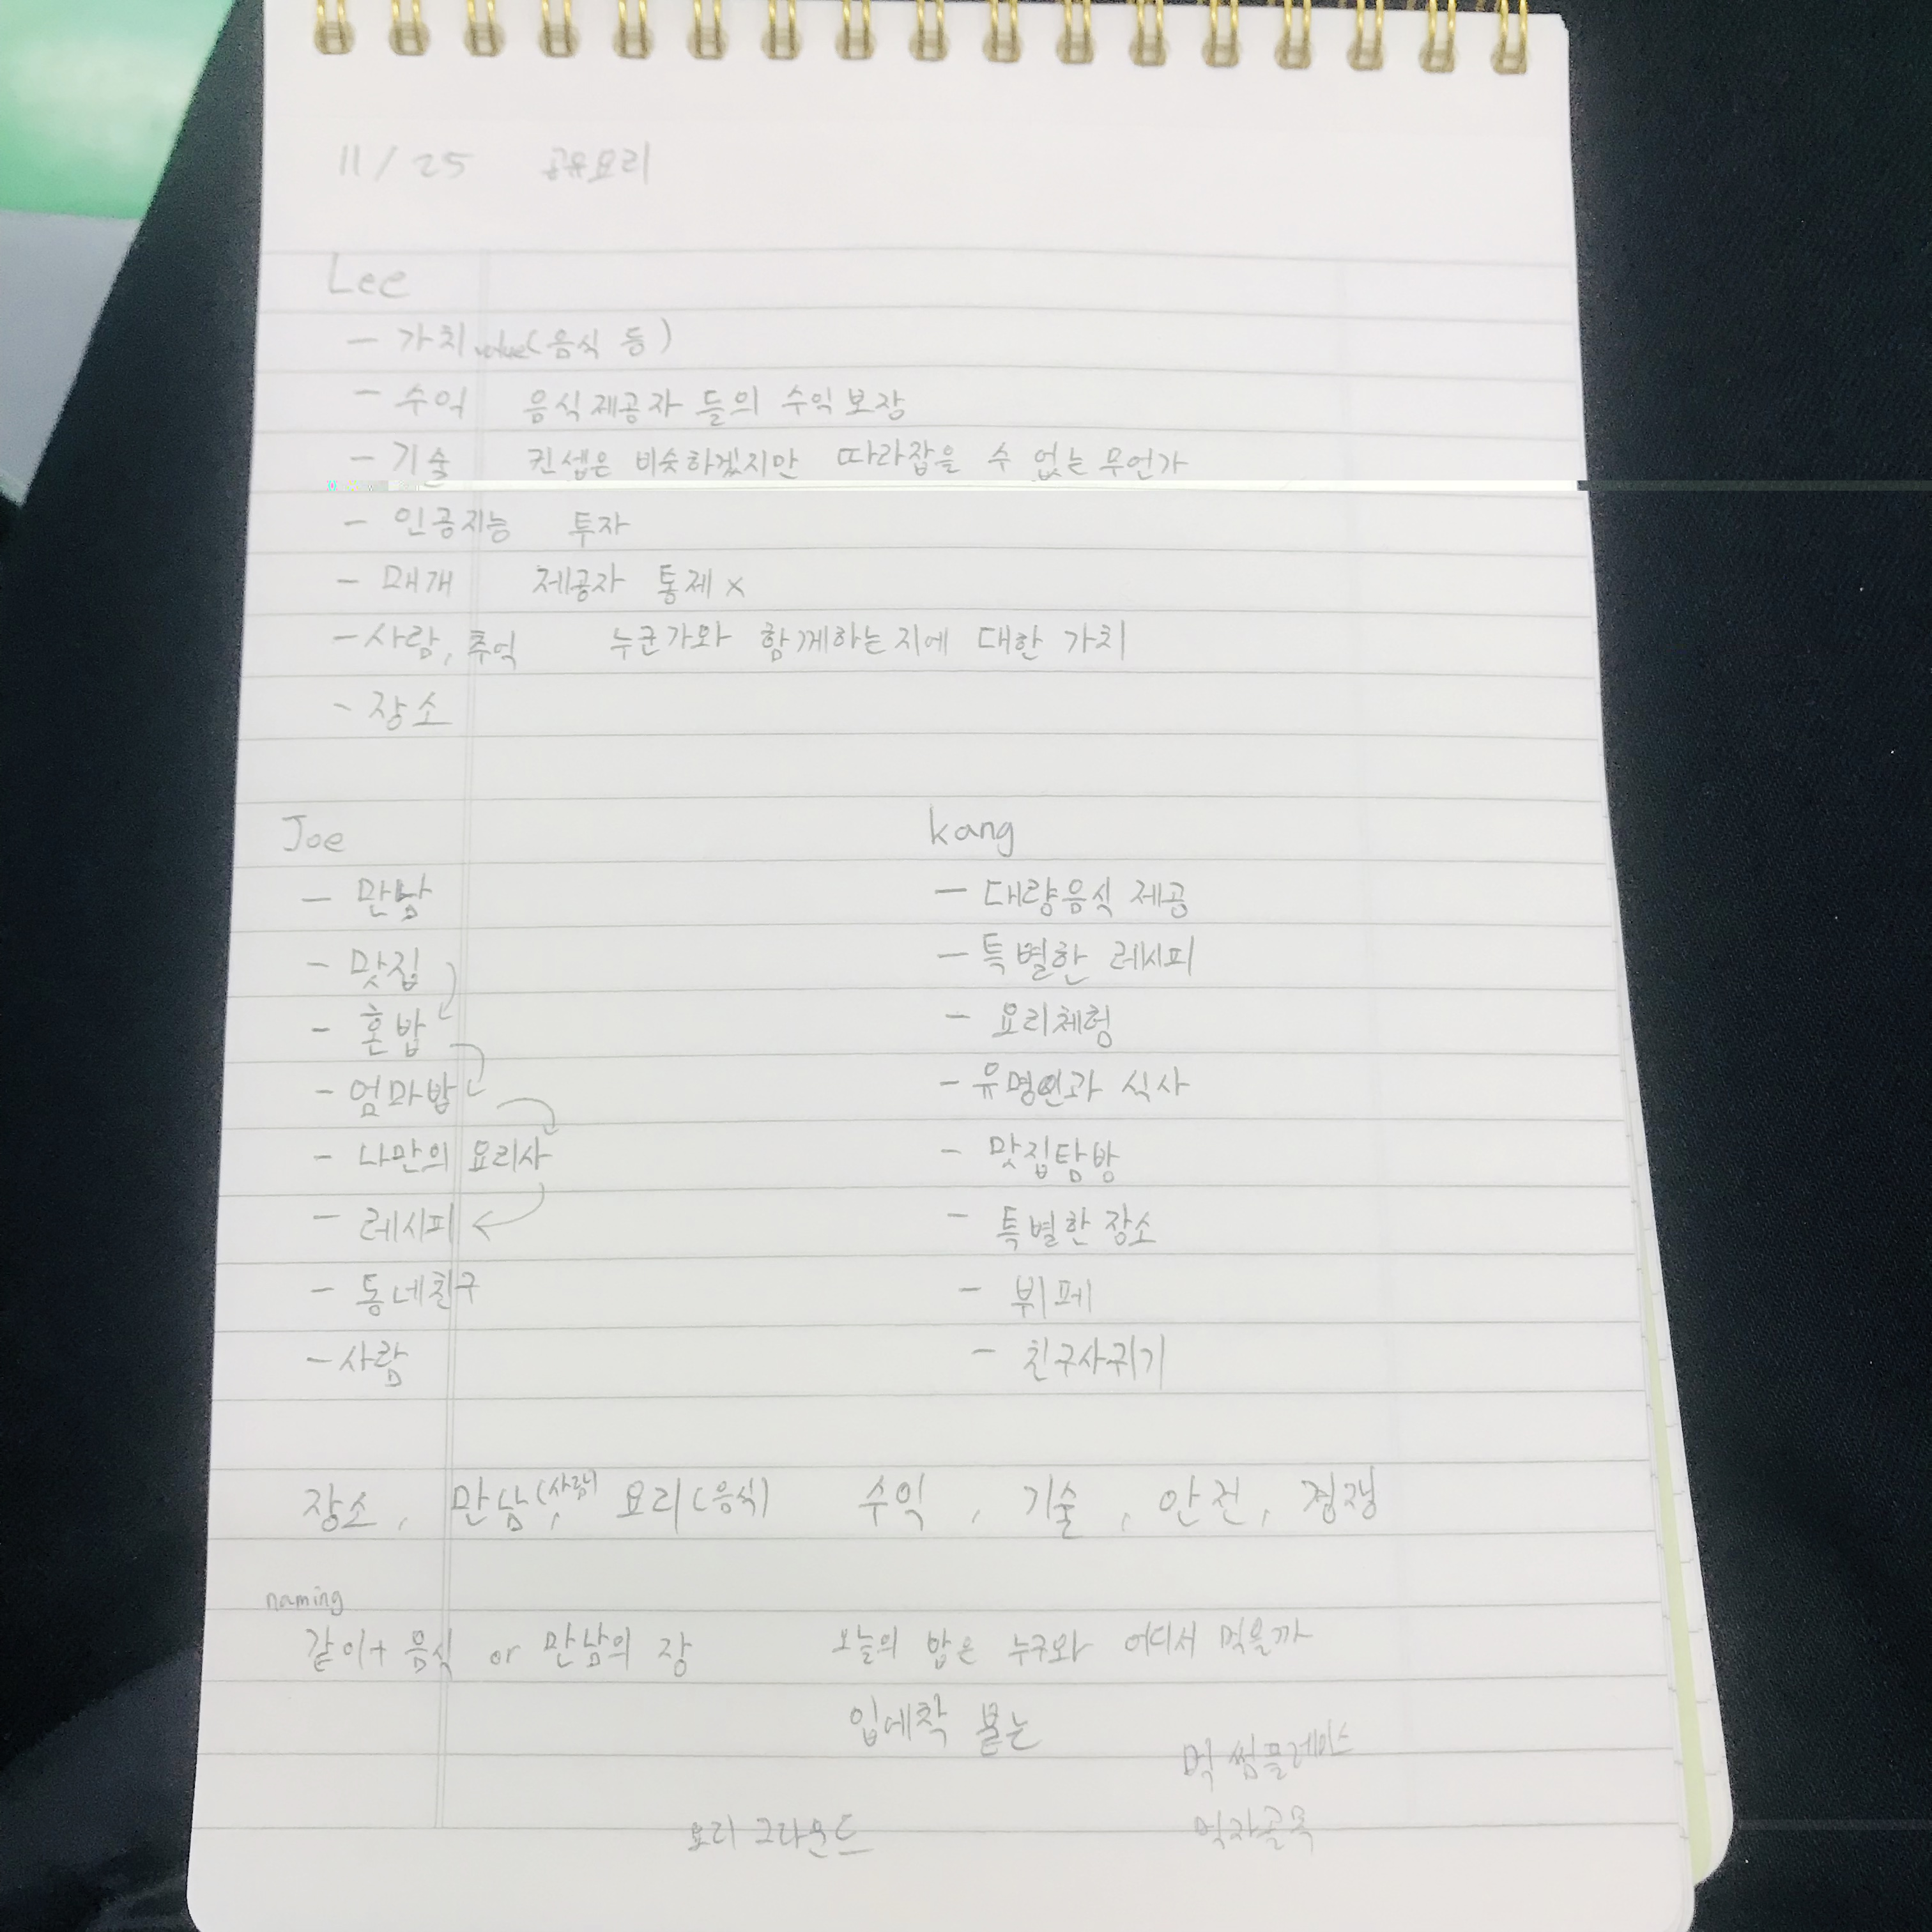 11/25 공유요리
Lee
- 가치 value(음식 등)
- 수익 음식제공자 들의 수익보장
- 기술 컨셉은 비슷하겠지만 따라잡을 수 없는 무언가
- 인공지능 투자
- 매개 제공자 통제 x
- 사람, 추억 누군가와 함께하는지에 대한 가치
- 장소
Joe
- 만남
- 맛집
- 혼밥
- 엄마밥
- 나만의 요리사
- 레시피
- 동네친구
- 사람
kang
- 대량음식 제공
- 특별한 레시피
- 요리체험
- 유명인과 식사
- 맛집탐방
- 특별한 장소
- 뷔페
- 친구사귀기
장소, 만남(사람), 요리(음식) 수익, 기술, 안전, 경쟁
naming
같이+음식 or 만남의 장 오늘의 밥은 누구와 어디서 먹을까
입에착 붙는
먹썸플레이스
요리 그라운드 먹자골목